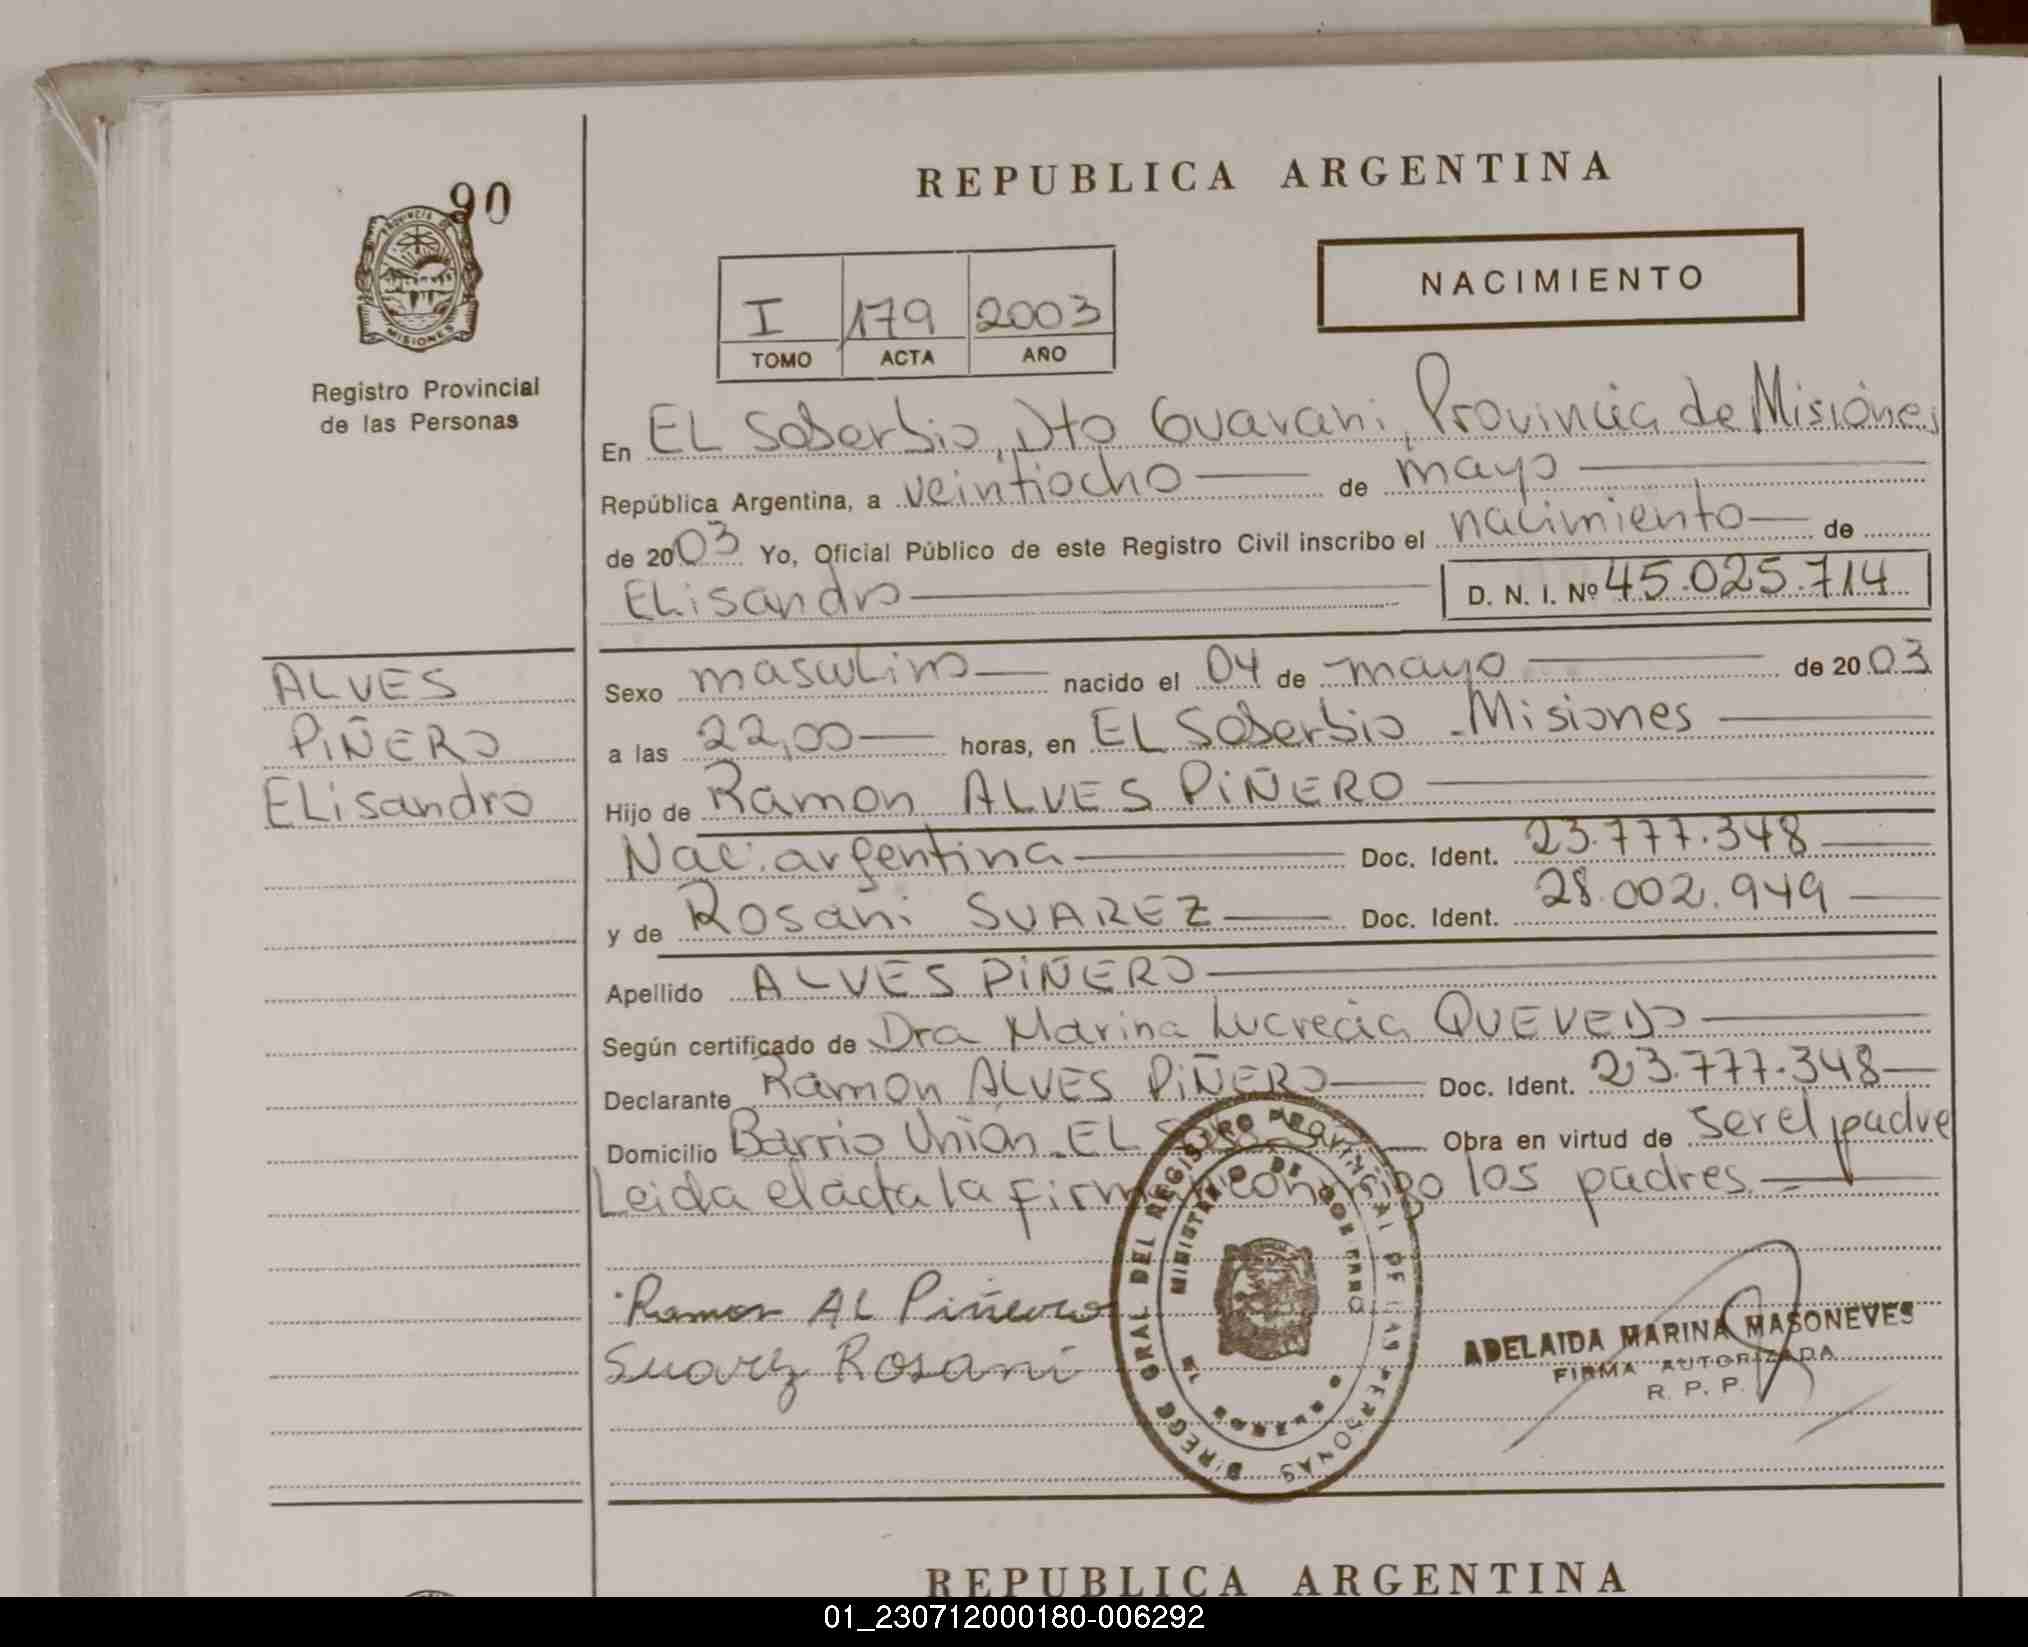 90
PROVINCIA DE
MISIONES
Registro Provincial
de las Personas
REPUBLICA ARGENTINA
I 179 2003
TOMO ACTA AÑO
NACIMIENTO
En EL Soberbio, Dto Guarani, Provincia de Misiones
República Argentina, a veintiocho de mayo
de 2003 Yo, Oficial Público de este Registro Civil inscribo el nacimiento de
ELisandro D. N. I. Nº 45.025.714
ALVES
PIÑERO
ELisandro
Sexo masculino nacido el 04 de mayo de 2003
a las 22,00 horas, en EL Soberbio - Misiones
Hijo de Ramon ALVES PIÑERO
Nac. argentina Doc. Ident. 23.777.348
y de Rosani SUAREZ Doc. Ident. 28.002.949
Apellido ALVES PIÑERO
Según certificado de Dra Marina Lucrecia QUEVEDO
Declarante Ramon ALVES PIÑERO Doc. Ident. 23.777.348
Domicilio Barrio Unión - EL Obra en virtud de ser el padre
Leida el acta la firman conmigo los padres
Ramon AL Piñero
Suarez Rosani
DIREGC GRAL DEL REGISTRO PROVINCIAL DE LAS PERSONAS
MINISTERIO DE GOBIERNO
ADELAIDA MARINA MASONEVES
FIRMA AUTORIZADA
R. P. P.
REPUBLICA ARGENTINA
01_230712000180-006292